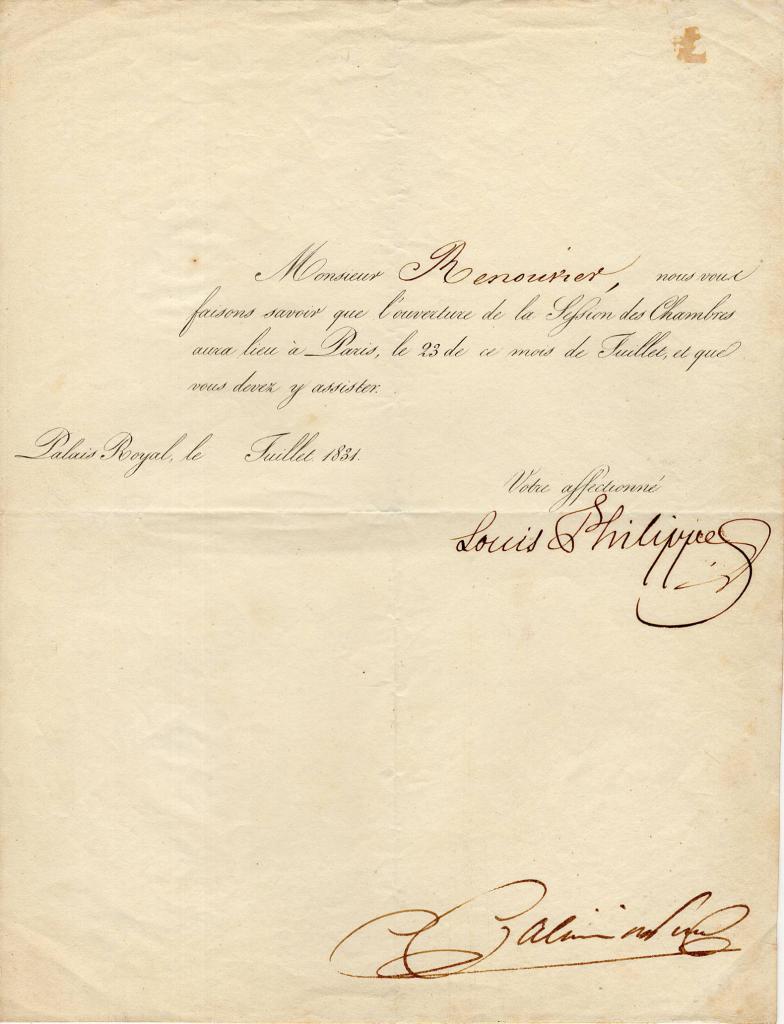 Monsieur Renouvier, nous vous
faisons savoir que l'ouverture de la Session des Chambres
aura lieu à Paris, le 23 de ce mois de Juillet, et que
vous devez y assister.
Palais Royal, le Juillet 1831.
Votre affectionné
Louis Philippe